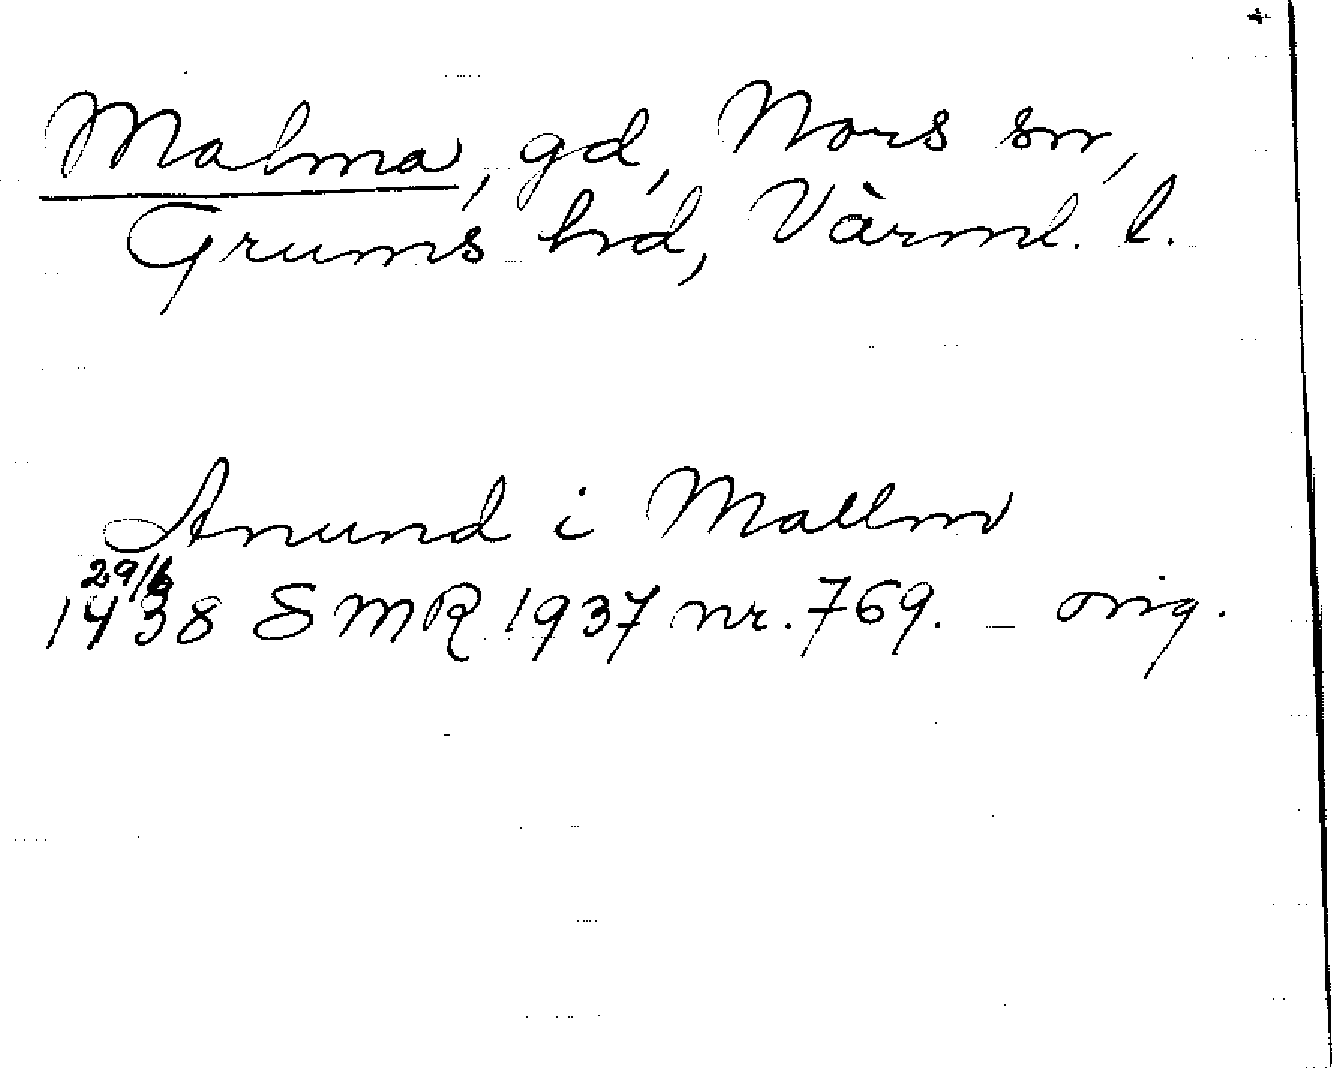 Malma, gd, Nors sn,
Grums hd, Värml. l.
Anund i Mallm
29/6
1438 SMR 1937 nr. 769. – orig.